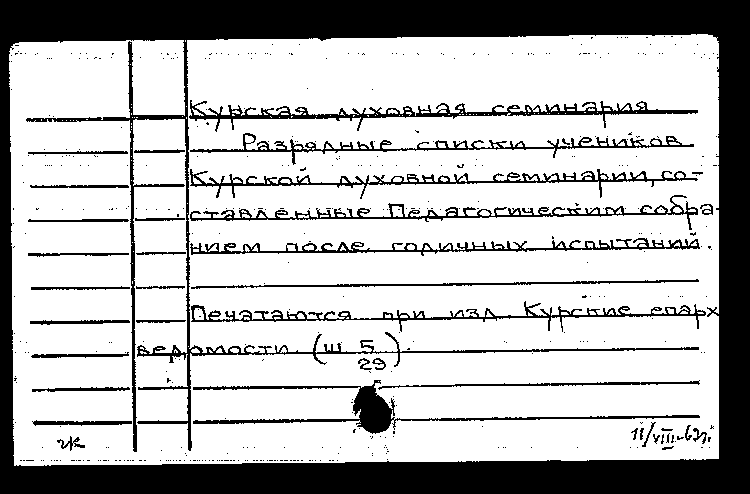 Курская духовная семинария.
Разрядные списки учеников
Курской духовной семинарии, со-
ставленные Педагогическим собра-
нием после годичных испытаний.
Печатаются при изд. Курские епарх
ведомости (ш 5/29).
11/VIII-62г.